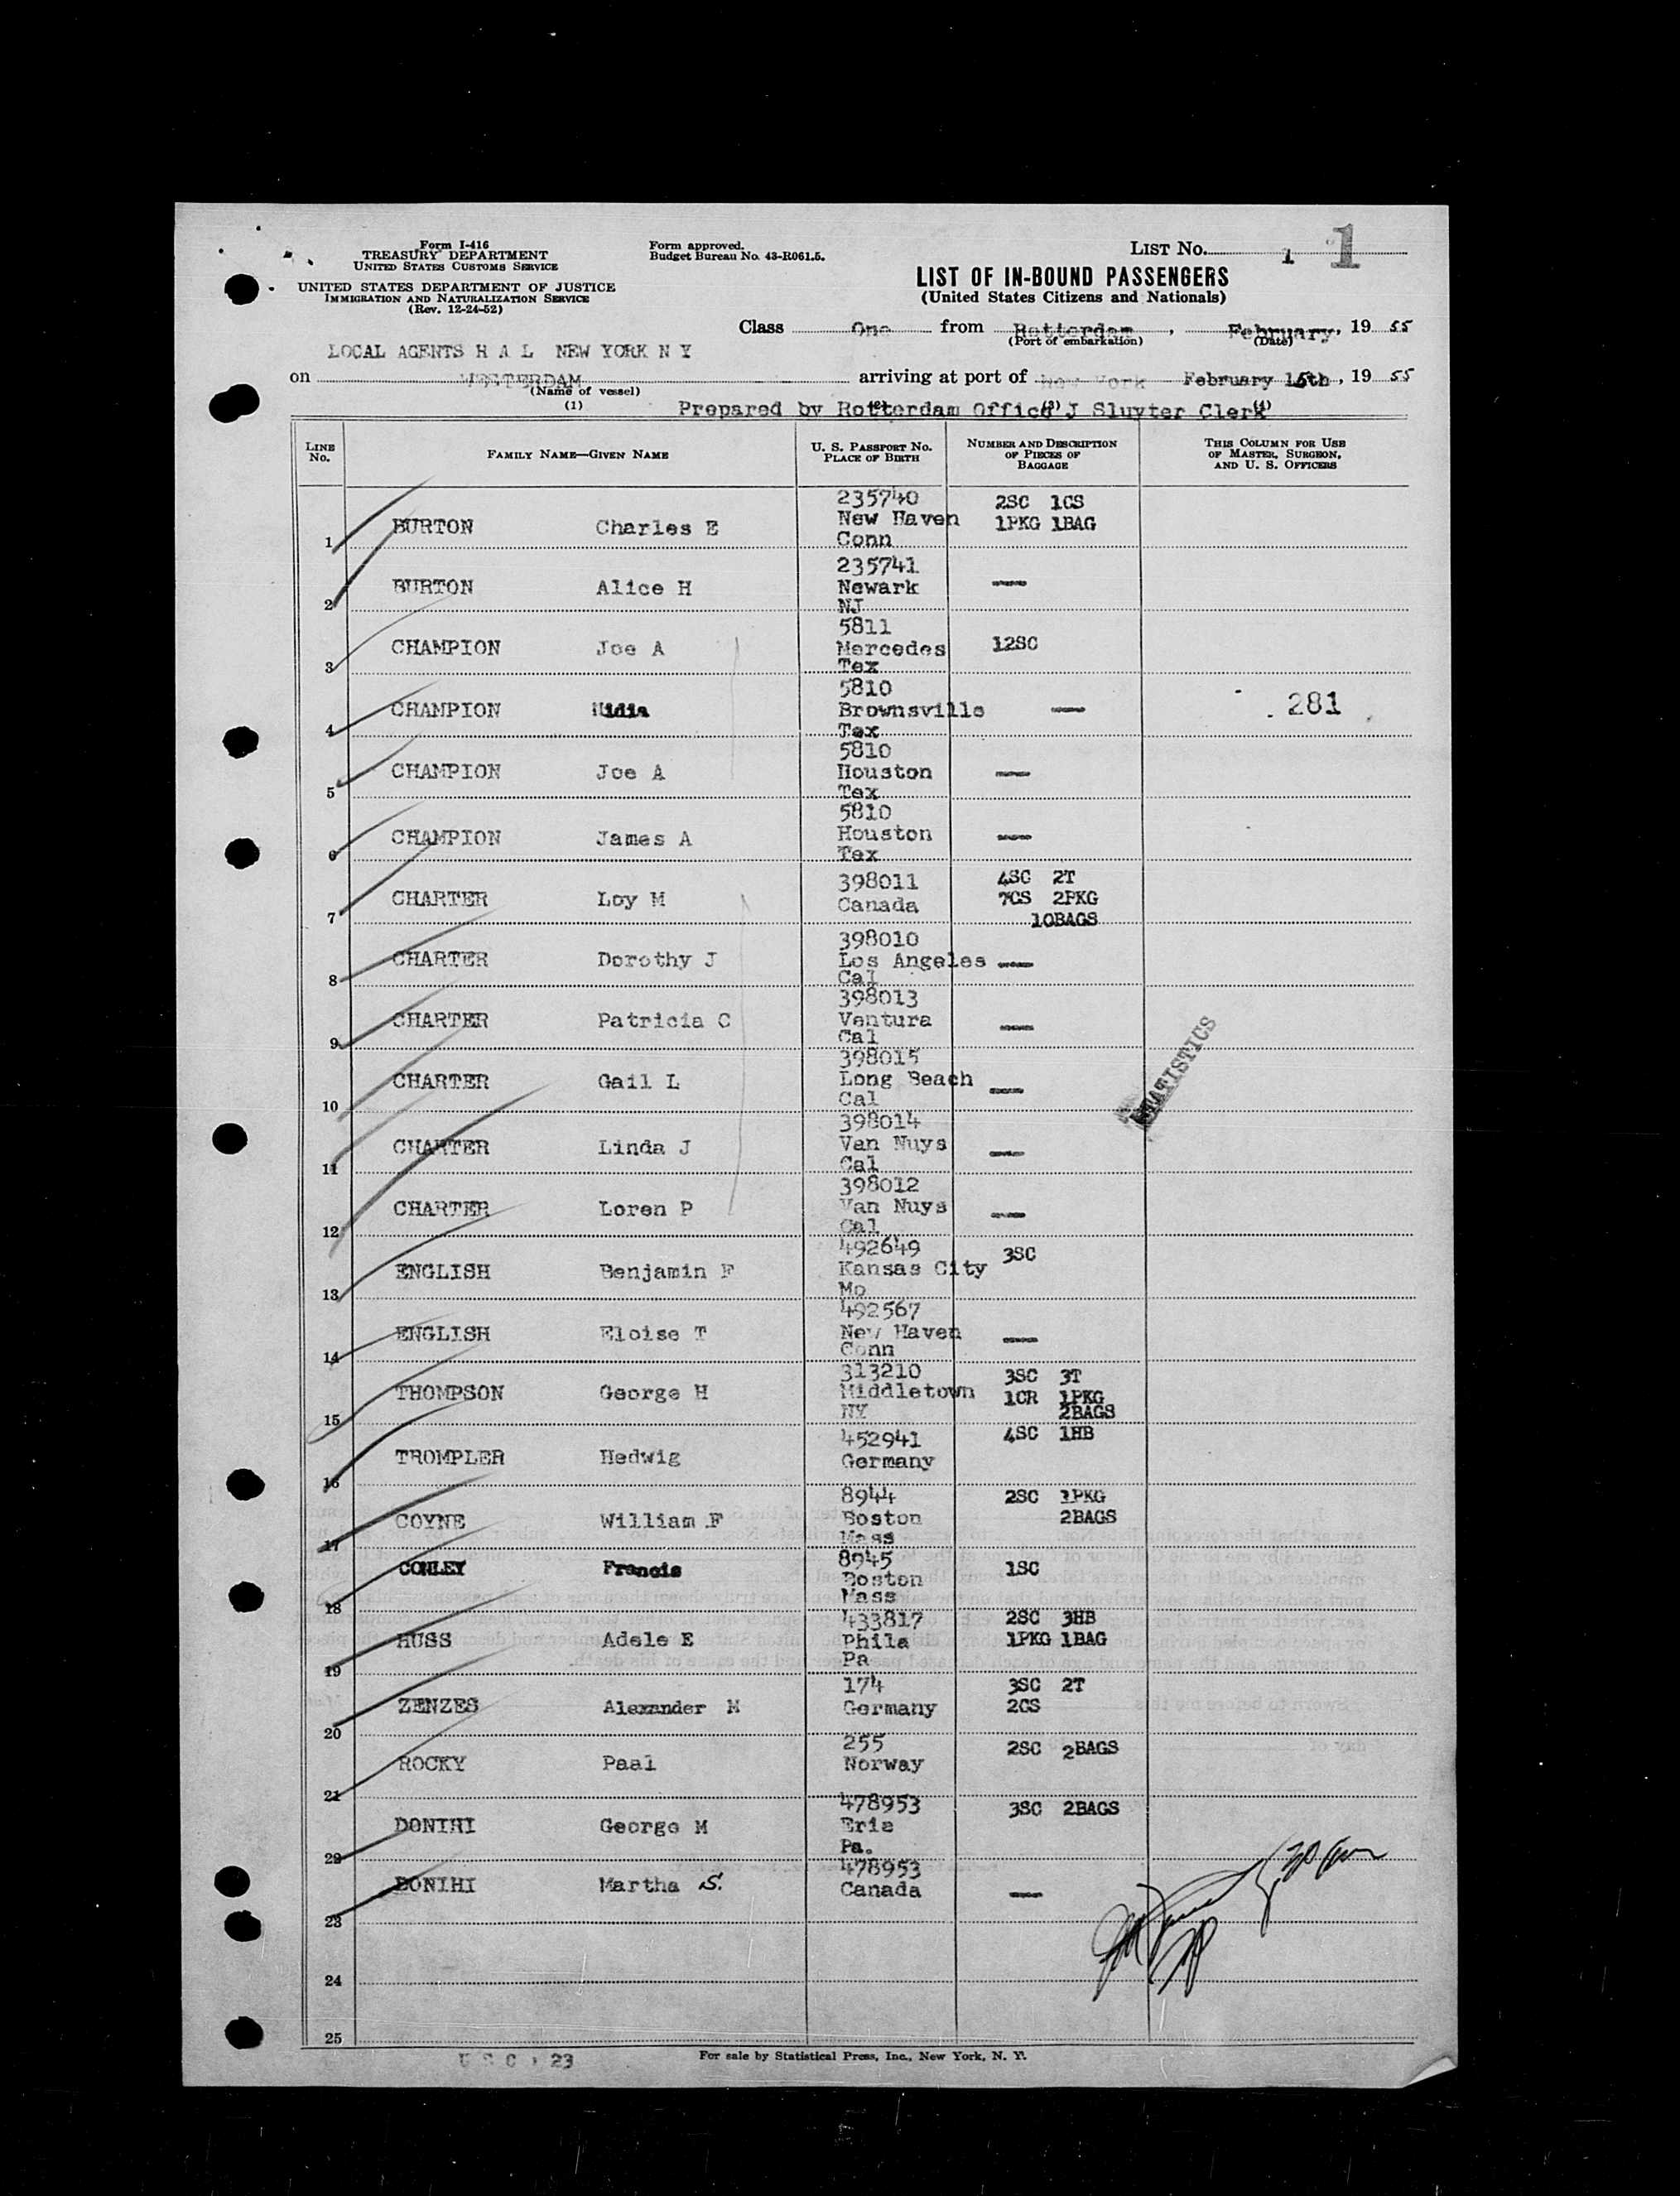 Form I-416
TREASURY DEPARTMENT
UNITED STATES CUSTOMS SERVICE
UNITED STATES DEPARTMENT OF JUSTICE
IMMIGRATION AND NATURALIZATION SERVICE
(Rev. 12-24-52)
Form approved.
Budget Bureau No. 43-R061.5.
LIST No. 1 1
LIST OF IN-BOUND PASSENGERS
(United States Citizens and Nationals)
Class One from Rotterdam, February, 19 55
(Port of embarkation) (Date)
LOCAL AGENTS H A L NEW YORK N Y
on WESTERDAM arriving at port of New York February 15th, 19 55
(Name of vessel)
(1) (2) (3) (4)
Prepared by Rotterdam Office J Sluyter Clerk
LINE No. FAMILY NAME—GIVEN NAME U. S. PASSPORT No. PLACE OF BIRTH NUMBER AND DESCRIPTION OF PIECES OF BAGGAGE THIS COLUMN FOR USE OF MASTER, SURGEON, AND U. S. OFFICERS
1 BURTON Charles E 235740 New Haven Conn 2SC 1CS 1PKG 1BAG
2 BURTON Alice H 235741 Newark NJ —
3 CHAMPION Joe A 5811 Mercedes Tex 12SC
4 CHAMPION 5810 Brownsville Tex — 281
5 CHAMPION Joe A 5810 Houston Tex —
6 CHAMPION James A 5810 Houston Tex —
7 CHARTER Loy M 398011 Canada 4SC 2T 7CS 2PKG 10BAGS
8 CHARTER Dorothy J 398010 Los Angeles Cal —
9 CHARTER Patricia C 398013 Ventura Cal —
10 CHARTER Gail L 398015 Long Beach Cal —
11 CHARTER Linda J 398014 Van Nuys Cal —
12 CHARTER Loren P 398012 Van Nuys Cal —
STATISTICS
13 ENGLISH Benjamin F 492649 Kansas City Mo 3SC
14 ENGLISH Eloise T 492567 New Haven Conn —
15 THOMPSON George H 313210 Middletown NY 3SC 3T 1CR 1PKG 2BAGS
16 TROMPLER Hedwig 452941 Germany 4SC 1HB
17 COYNE William F 8944 Boston Mass 2SC 1PKG 2BAGS
18 CONLEY Francis 8945 Boston Mass 1SC
19 HUSS Adele E 433817 Phila Pa 2SC 3HB 1PKG 1BAG
20 ZENZES Alexander M 174 Germany 3SC 2T 2CS
21 ROCKY Paal 255 Norway 2SC 2BAGS
22 DONIHI George M 478953 Erie Pa. 3SC 2BAGS
23 DONIHI Martha S. 478953 Canada —
24
25
U S C 23
For sale by Statistical Press, Inc., New York, N. Y.